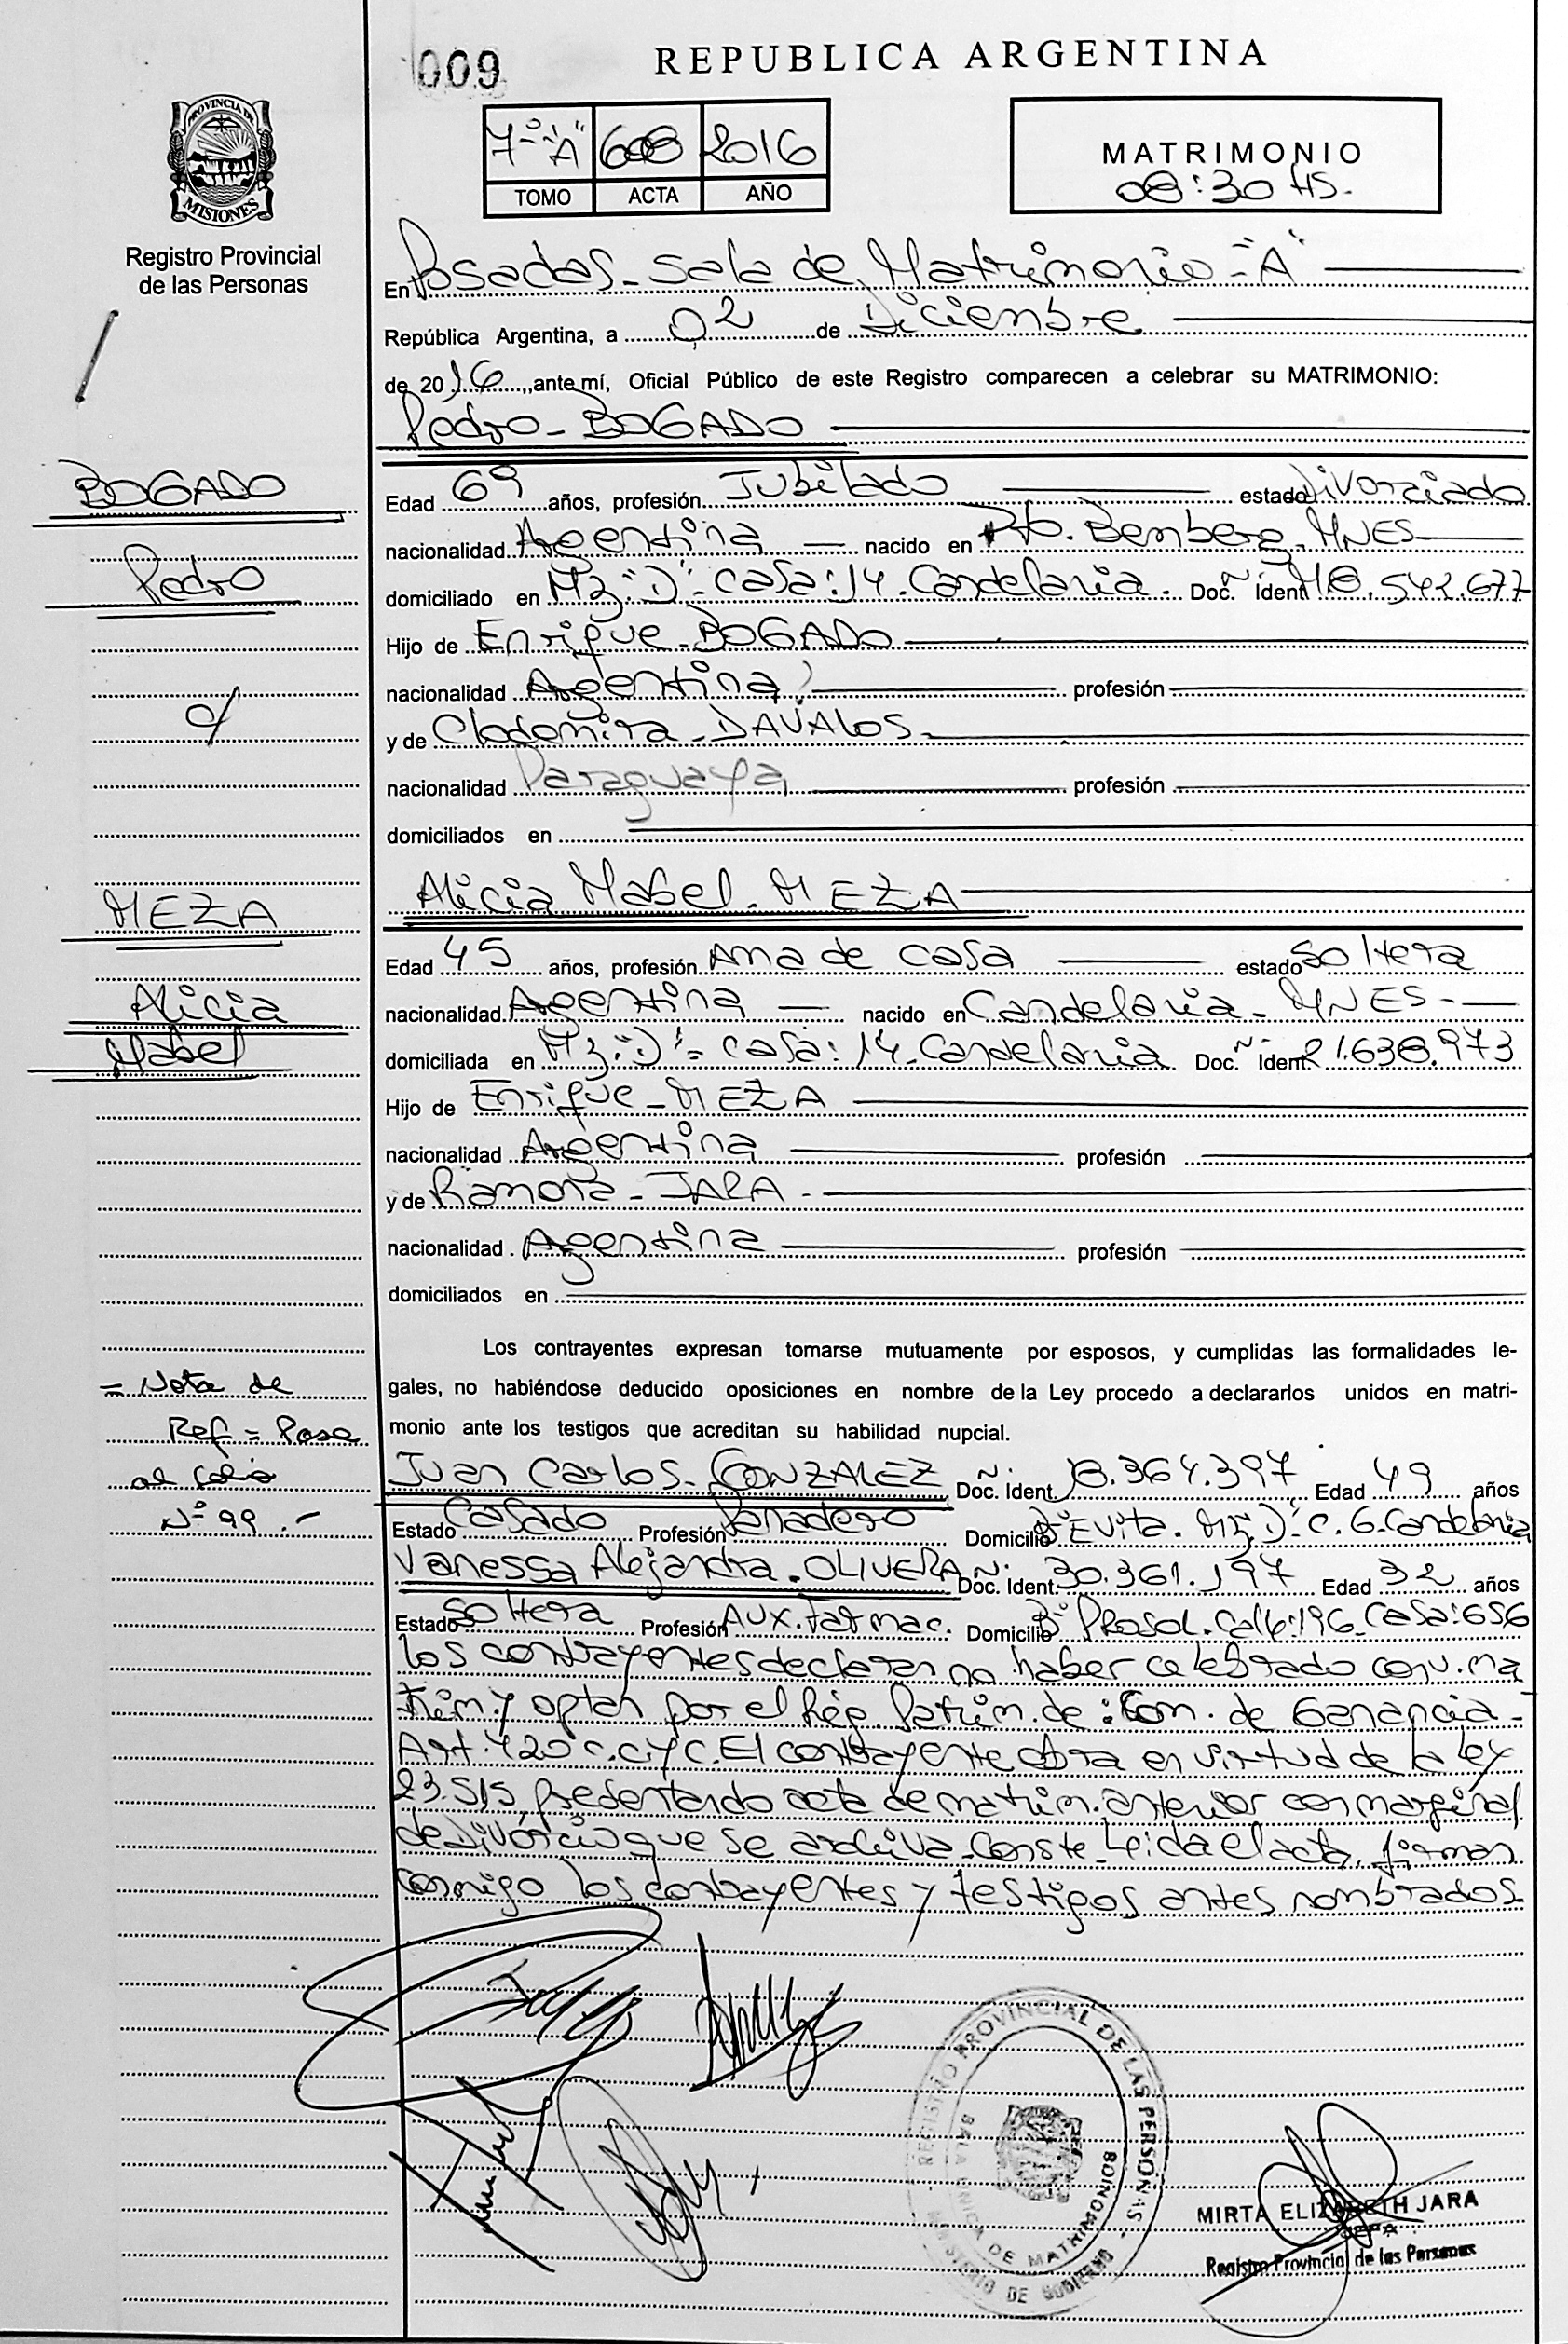 009
REPUBLICA ARGENTINA
7º "A" 608 2016
TOMO ACTA AÑO
MATRIMONIO
08:30 HS.
PROVINCIA DE
MISIONES
Registro Provincial
de las Personas
En Posadas - Sala de Matrimonio - "A"
República Argentina, a 02 de Diciembre
de 2016, ante mí, Oficial Público de este Registro comparecen a celebrar su MATRIMONIO:
Pedro - BOGADO
BOGADO
Pedro
c/
Edad 69 años, profesión Jubilado estado divorciado
nacionalidad Argentina nacido en Pto. Bemberg - MNES
domiciliado en Mz: "D" - casa: 14. Candelaria. Doc. Ident. M8.542.677
Hijo de Enrique - BOGADO
nacionalidad Argentina profesión
y de Clodomira - DAVALOS -
nacionalidad Paraguaya profesión
domiciliados en
Alicia Mabel - MEZA
MEZA
Alicia
Mabel
Edad 45 años, profesión Ama de casa estado soltera
nacionalidad Argentina nacido en Candelaria - MNES -
domiciliada en Mz: "D" - casa: 14. Candelaria Doc. Ident. 21.638.973
Hijo de Enrique - MEZA
nacionalidad Argentina profesión
y de Ramona - JARA -
nacionalidad Argentina profesión
domiciliados en
Los contrayentes expresan tomarse mutuamente por esposos, y cumplidas las formalidades le-
gales, no habiéndose deducido oposiciones en nombre de la Ley procedo a declararlos unidos en matri-
monio ante los testigos que acreditan su habilidad nupcial.
= Nota de
Ref = Pase
al folio
Nº 99 .-
Juan Carlos - GONZALEZ Doc. Ident. 18.364.397 Edad 49 años
Estado Casado Profesión Panadero Domicilio Bº Evita. Mz "D" C. 6. Candelaria
Vanessa Alejandra - OLIVERA Doc. Ident. 30.361.197 Edad 32 años
Estado Soltera Profesión AUX. farmac. Domicilio Bº Prosol. Calle: 196 Casa: 656
los contrayentes declaran no haber celebrado conv. ma
trim. y optan por el Rég. Patrim. de: Com. de Ganancia -
Art. 420 C.C. y C. El contrayente obra en virtud de la Ley
23.515, presentando acta de matrim. anterior con marginal
de Divorcio que se archiva - Conste - Leída el acta, firman
conmigo los contrayentes y testigos antes nombrados
REGISTRO PROVINCIAL DE LAS PERSONAS -
SALA UNICA DE MATRIMONIOS
MINISTERIO DE GOBIERNO
MIRTA ELIZABETH JARA
JEFA
Registro Provincial de las Personas